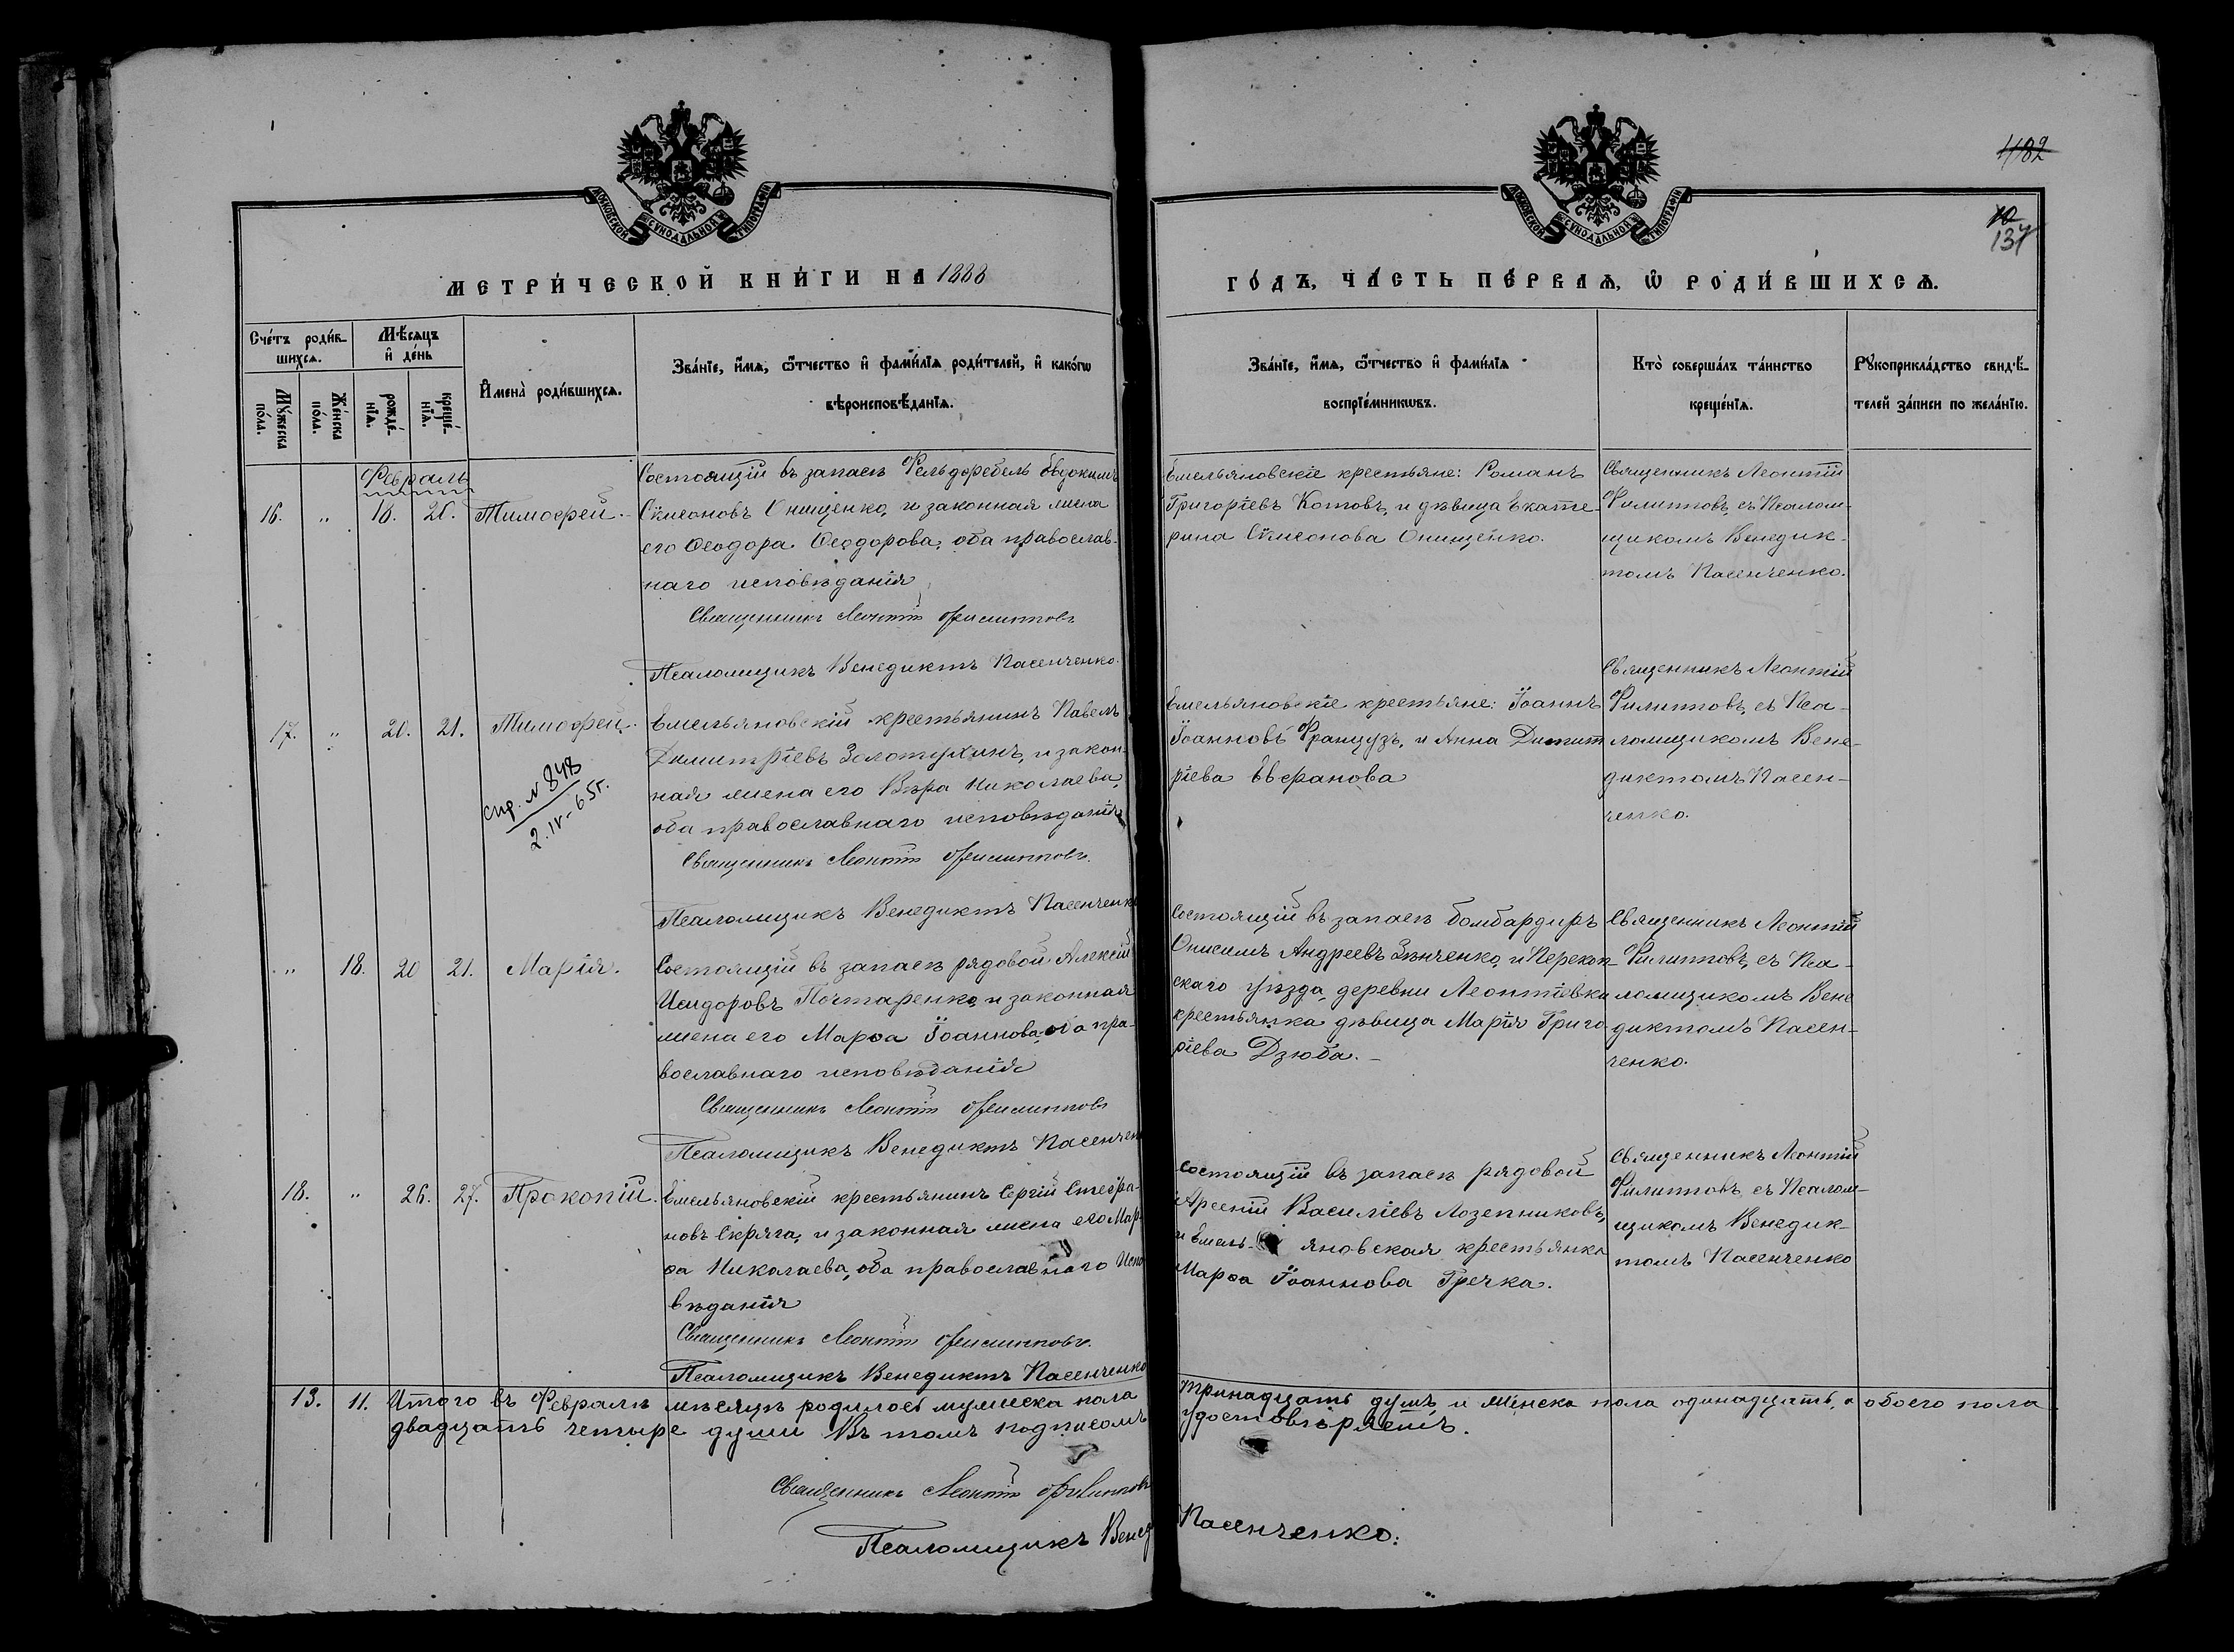 1182
10
137
МОСКОВСКОЙ СѴНОДАЛЬНОЙ ТИПОГРАФІИ
МОСКОВСКОЙ СѴНОДАЛЬНОЙ ТИПОГРАФІИ
МЕТРИ́ЧЕСКОЙ КНИ́ГИ НА 1888
ГО́ДЪ, ЧА́СТЬ ПЕ́РВАѦ, Ѽ РОДИ́ВШИХСѦ.
Сче́тъ роди́в-
шихсѧ.
Мѣ́сѧцъ
и҆ де́нь
И҆мена̀ роди́вшихсѧ.
Зва́нїе, и҆́мѧ, ѻ҆́тчество и҆ фами́лїѧ роди́телей, и҆ како́гѡ
вѣроисповѣ́данїѧ.
Мꙋ́жеска
по́ла.
Же́нска
по́ла.
рожде́-
нїѧ.
креще́-
нїѧ.
Зва́нїе, и҆́мѧ, ѻ҆́тчество и҆ фами́лїѧ
воспрїе́мникѡвъ.
Кто̀ соверша́лъ та́инство
креще́нїѧ.
Рꙋкоприкла́дство свидѣ́-
телей за́писи по жела́нїю.
Февраль
16. " 16. 20. Тимофей.
Состоящій въ запасѣ Фельдфебель Евдокимъ
Сѵмеоновъ Онищенко, и законная жена
его Ѳеодора Ѳеодорова, оба православ-
наго исповѣданія
Священникъ Леонтій Филипповъ
Псаломщикъ Венедиктъ Пасенченко.
Емельяновскіе крестьяне: Романъ
Григоріевъ Котовъ, и дѣвица Екате-
рина Сѵмеонова Онищенко.
Священникъ Леонтій
Филипповъ, съ Псалом-
щикомъ Венедик-
томъ Пасенченко.
17. " 20. 21. Тимофей.
спр. № 848
2.IV-65г.
Емельяновскій крестьянинъ Павелъ
Димитріевъ Золотухинъ, и закон-
ная жена его Вѣра Николаева,
оба православнаго исповѣданія
Священникъ Леонтій Филипповъ.
Псаломщикъ Венедиктъ Пасенченко
Емельяновскіе крестьяне: Іоаннъ
Іоанновъ Французъ, и Анна Димит
ріева Евфанова
Священникъ Леонтій
Филипповъ, съ Пса-
ломщикомъ Вене-
диктомъ Пасен-
ченко.
" 18. 20 21. Марія.
Состоящій въ запасѣ рядовой Алексій
Исидоровъ Почтаренко, и законная
жена его Марѳа Іоаннова, оба пра-
вославнаго исповѣданія
Священникъ Леонтій Филипповъ
Псаломщикъ Венедиктъ Пасенчен
Состоящій въ запасѣ бомбардиръ
Онисимъ Андреевъ Зѣнченко, и Перекоп-
скаго уѣзда, деревни Леонтіевки
крестьянка дѣвица Марія Григо
ріева Дзюба.
Священникъ Леонтій
Филипповъ, съ Пса-
ломщикомъ Вене
диктомъ Пасен-
ченко.
18. " 26. 27. Прокопій.
Емельяновскій крестьянинъ Сергій Стефа-
новъ Скряга, и законная жена его Мар
ѳа Николаева, оба православнаго испо
вѣданія
Священникъ Леонтій Филипповъ.
Псаломщикъ Венедиктъ Пасенченко
Состоящій въ запасѣ рядовой
Арсеній Василіевъ Лозенниковъ,
и Емель- яновская крестьянка
Марѳа Іоаннова Гречка.
Священникъ Леонтій
Филипповъ, съ Псалом-
щикомъ Венедик-
томъ Пасенченко
13. 11. Итого въ Февралѣ мѣсяцѣ родилось мужеска пола тринадцать душъ и женска пола одинадцать, а обоего пола
двадцать четыре души Въ томъ подписомъ удостовѣряемъ.
Священникъ Леонтій Филипповъ
Псаломщикъ Венед Пасенченко.